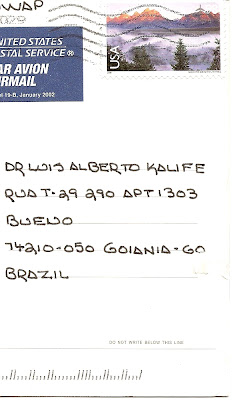 WAP
0029
UNITED STATES
POSTAL SERVICE®
PAR AVION
AIRMAIL
Label 19-B, January 2002
USA
DR LUIS ALBERTO KALIFE
RUA T-29 290 APT 1303
BUENO
74210-050 GOIANIA-GO
BRAZIL
DO NOT WRITE BELOW THIS LINE